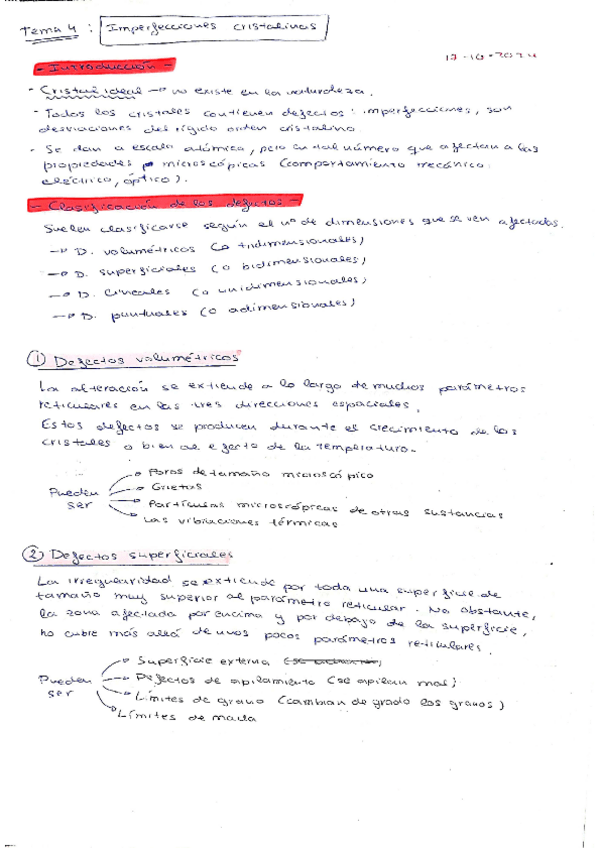 Tema 4 : Imperfecciones cristalinas
17-10-2024
- Introducción -
- Cristal ideal → no existe en la naturaleza.
- Todos los cristales contienen defectos: imperfecciones, son
desviaciones del rígido orden cristalino.
- Se dan a escala atómica, pero en tal número que afectan a las
propiedades microscópicas (comportamiento mecánico,
eléctrico, óptico).
- Clasificación de los defectos -
Suelen clasificarse según el nº de dimensiones que se ven afectadas.
→ D. volumétricos (o tridimensionales)
→ D. superficiales (o bidimensionales)
→ D. lineales (o unidimensionales)
→ D. puntuales (o adimensionales)
① Defectos volumétricos
La alteración se extiende a lo largo de muchos parámetros
reticulares en las tres direcciones espaciales.
Estos defectos se producen durante el crecimiento de los
cristales o bien al efecto de la temperatura.
Pueden ser
→ Poros de tamaño microscópico
→ Grietas
→ Partículas microscópicas de otras sustancias
→ Las vibraciones térmicas
② Defectos superficiales
La irregularidad se extiende por toda una superficie de
tamaño muy superior al parámetro reticular. No obstante,
la zona afectada por encima y por debajo de la superficie,
no cubre más allá de unos pocos parámetros reticulares.
Pueden ser
→ Superficie externa
→ Defectos de apilamiento (se apilan mal)
→ Límites de grano (cambian de grado los granos)
→ Límites de macla